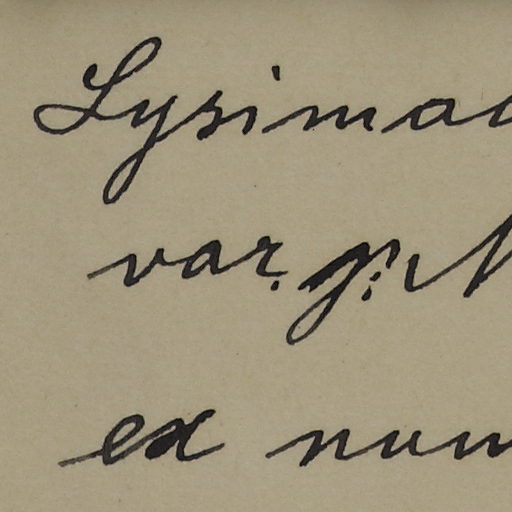 Lysimac
var.
ex num